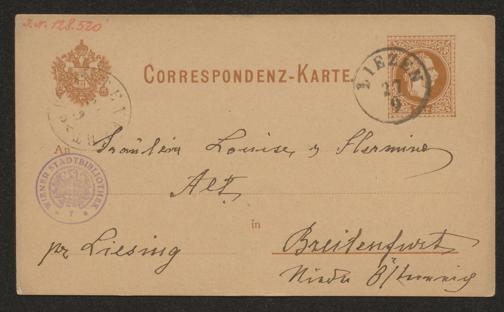 I.N. 128.520
CORRESPONDENZ-KARTE
LIEZEN
27
9
An Fräulein Louise u Hermine
Alt
WIENER STADTBIBLIOTHEK
in
pr Liesing
Breitenfurt
Nieder Österreich